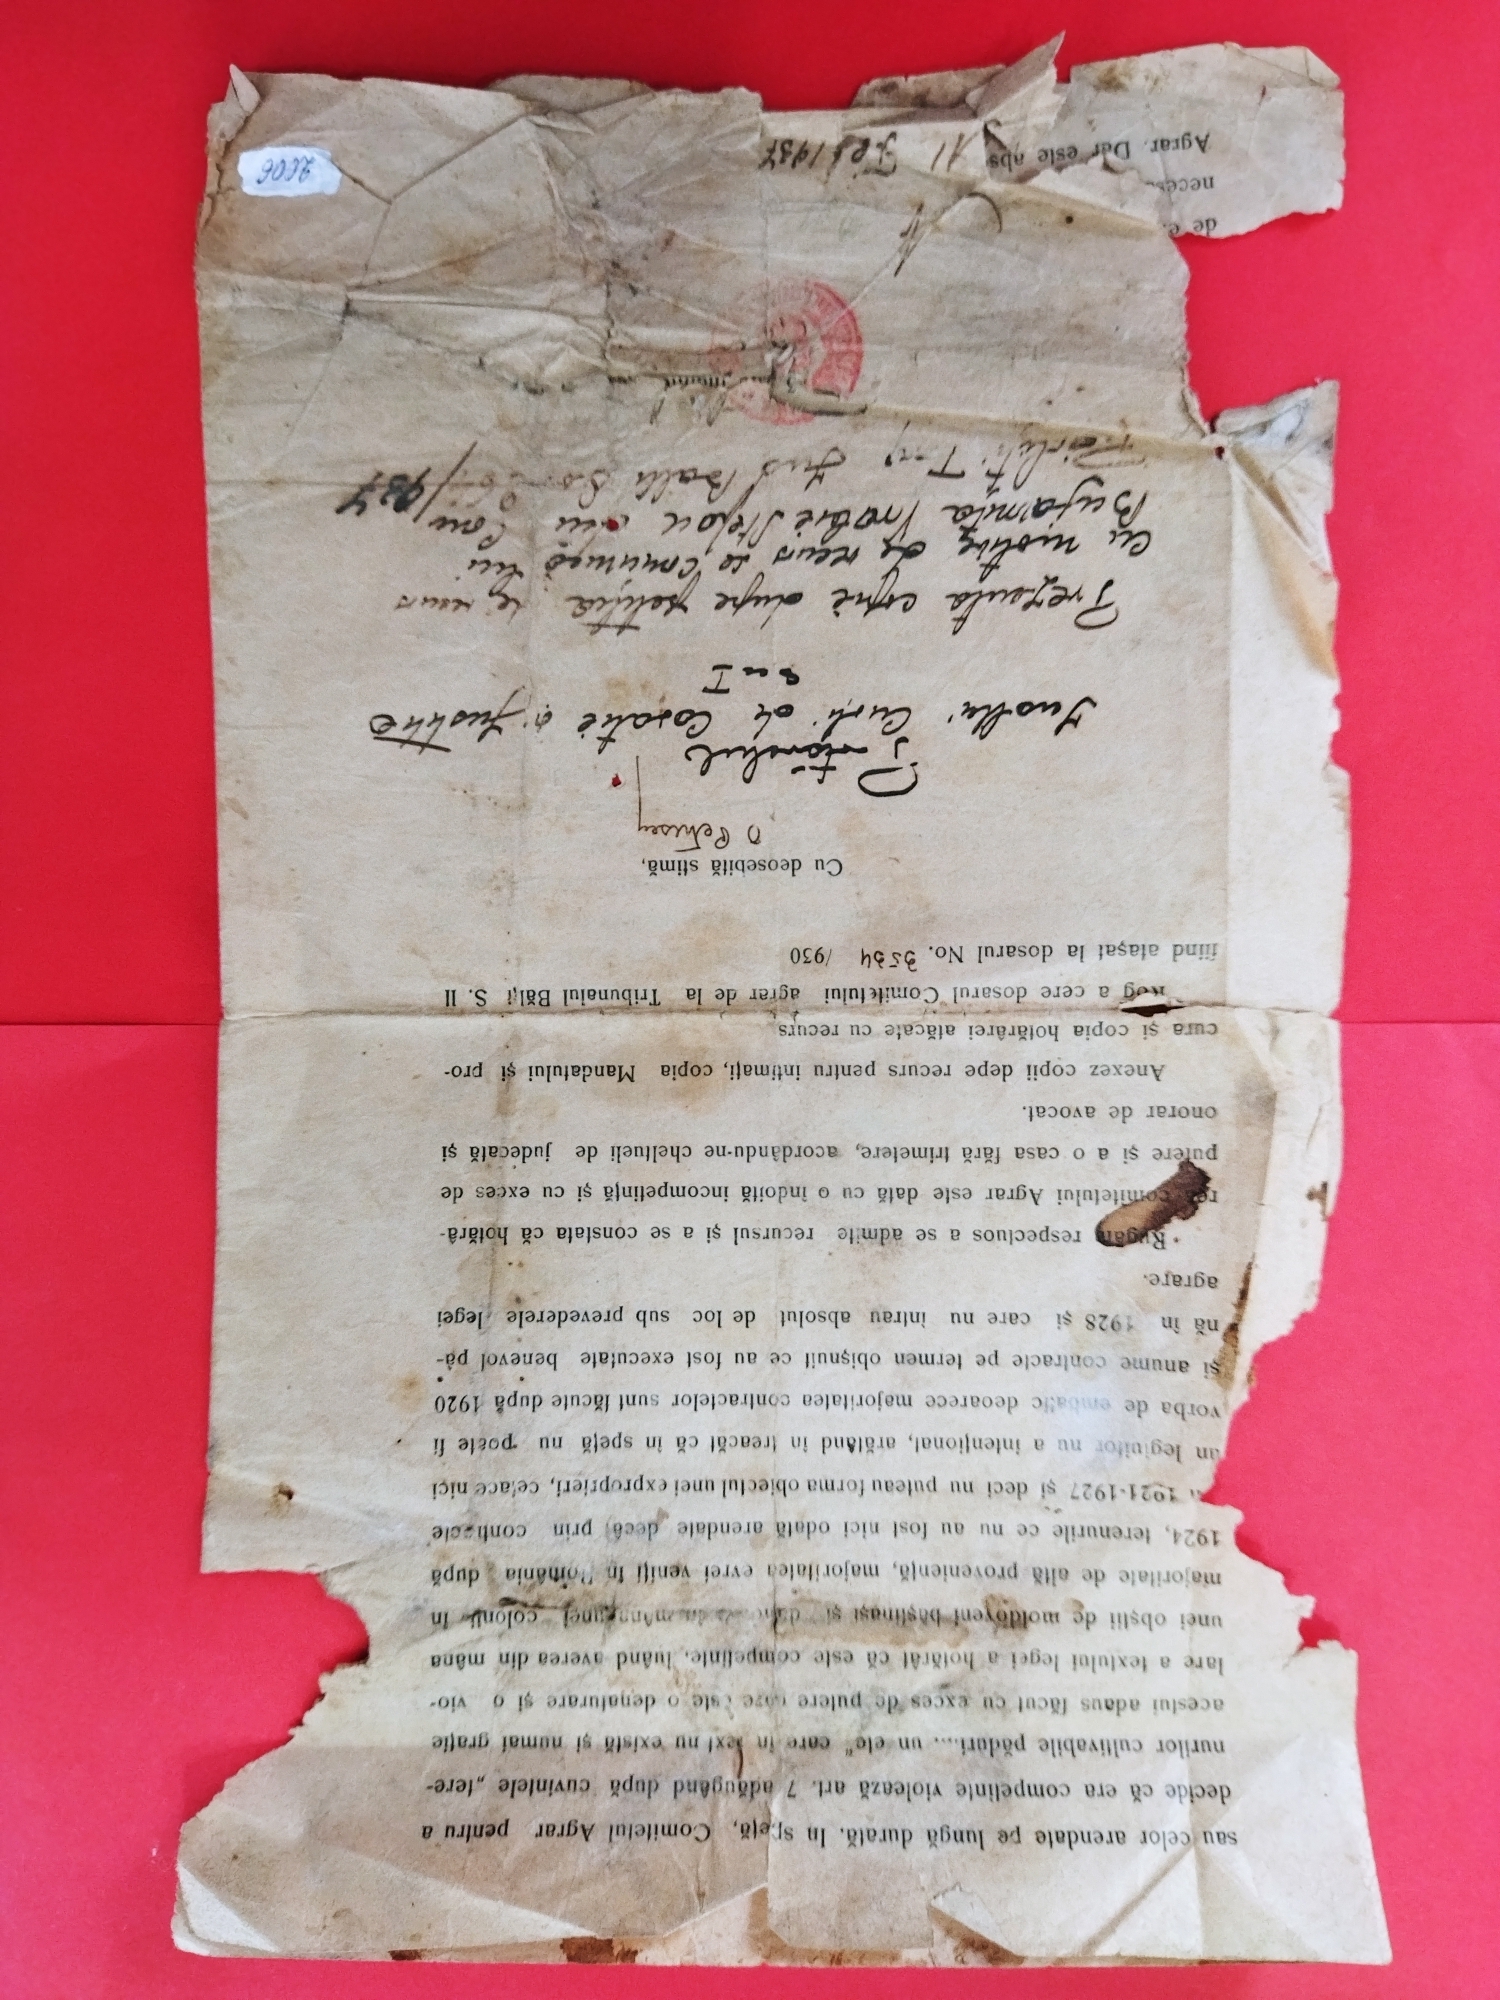 sau celor arendate pe lungă durată. In speță, Comitetul Agrar pentru a
decide că era competinte violează art. 7 adăugând după cuvintele „tere-
nurilor cultivabile păduri.... un etc" care in text nu există și numai grație
acestui adaus făcut cu exces de putere care este o denaturare și o vio-
lare a textului legei a hotărât că este competinte, luând averea din mâna
unei obștii de moldoveni băștinași și colonți în
majoritate de altă proveniență, majoritatea evrei veniți în România după
1924, terenurile ce nu au fost nici odată arendate decât prin contracte
1921-1927 și deci nu puteau forma obiectul unei exproprieri, ceiace nici
un legiuitor nu a intenționat, arătând in treacăt că in speță nu poate fi
vorba de embatic deoarece majoritatea contractelor sunt făcute după 1920
și anume contracte pe termen obișnuit ce au fost executate benevol pâ-
nă in 1928 și care nu intrau absolut de loc sub prevederele legei
agrare.
Rugăm respectuos a se admite recursul și a se constata că hotărâ-
rea comitetului Agrar este dată cu o indoită incompetință și cu exces de
putere și a o casa fără trimetere, acordându-ne cheltueli de judecată și
onorar de avocat.
Anexez copii depe recurs pentru intimați, copia Mandatului și pro-
cura și copia hotărârei atăcate cu recurs
Rog a cere dosarul Comitetului agrar de la Tribunalul Bălți S. II
fiind atașat la dosarul No. 3534 /930
Cu deosebită stimă,
Inaltei Curți de Casație și Justiție
S-a I
Prezenta copie dupe petiția de recurs
cu motive de recurs se comunică lui
Ștefan din Com
Jud Balti
937
1937
Agrar. Dar este abs
neces
de
2006